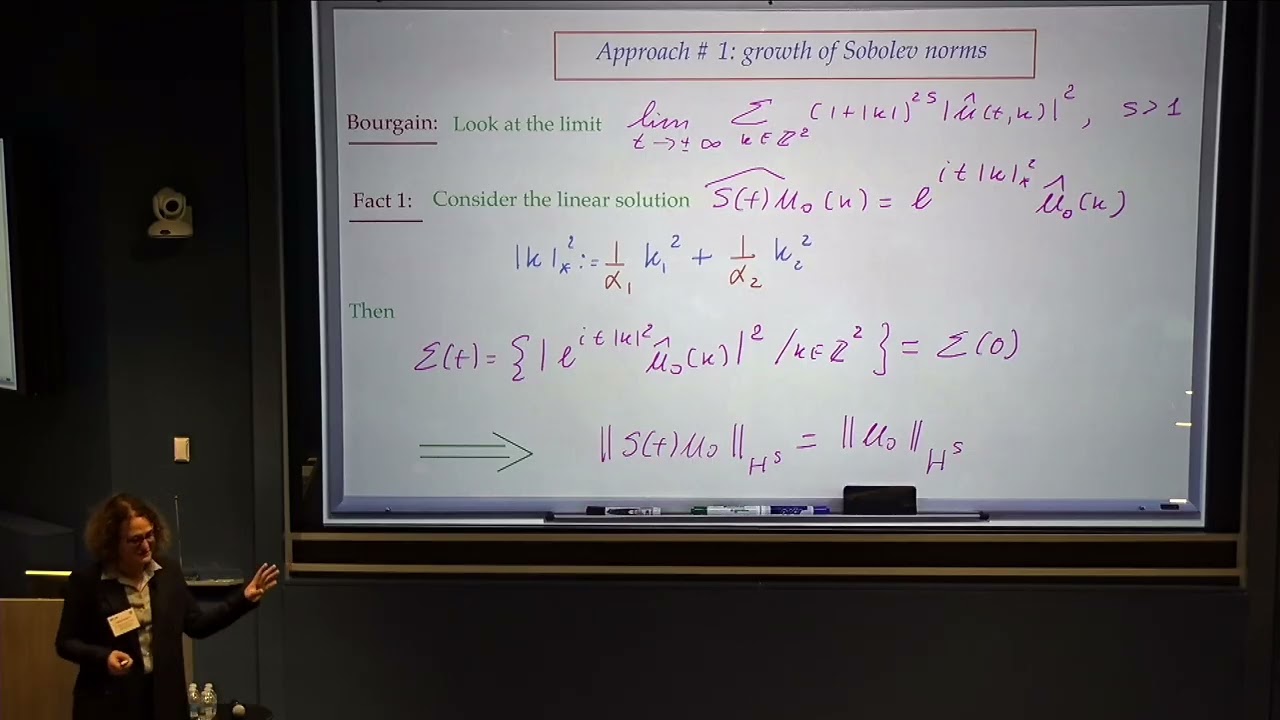 Approach # 1: growth of Sobolev norms
Bourgain: Look at the limit lim_{t→±∞} Σ_{k∈ℤ²} (1+|k|)^{2s} |û(t,k)|², s>1
Fact 1: Consider the linear solution \widehat{S(t)u₀}(k) = e^{it|k|_*^2} û₀(k)
|k|_*^2 := 1/α₁ k₁² + 1/α₂ k₂²
Then
Σ(t) = { |e^{it|k|²} û₀(k)|² / k∈ℤ² } = Σ(0)
⟹ ‖S(t)u₀‖_{H^s} = ‖u₀‖_{H^s}